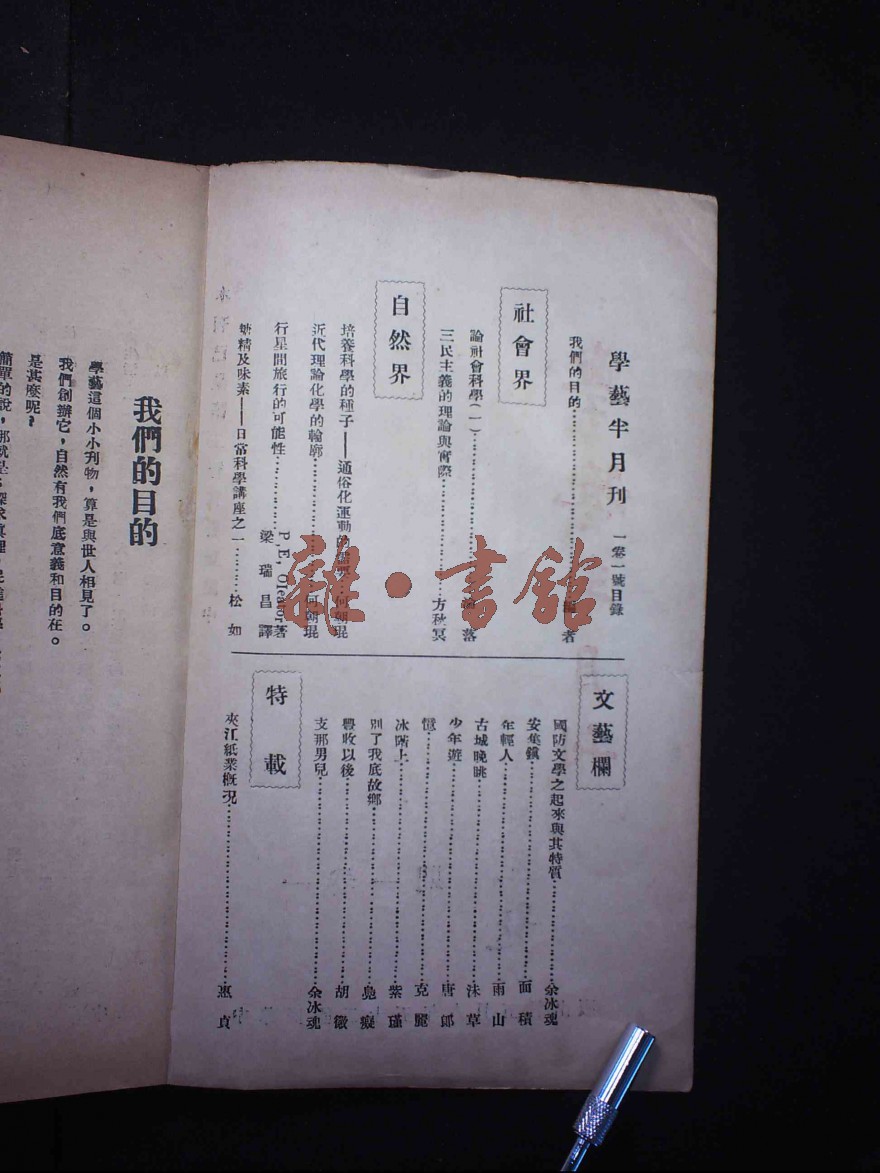 學藝半月刊 一卷一號目錄
我們的目的…………者
社會界
論社會科學(一)…………落
三民主義的理論與實際…………方秋冥
自然界
培養科學的種子——通俗化運動的 何朝琨
近代理論化學的輪廓…………何朝琨
行星間旅行的可能性…………P.E. Oleator著 梁瑞昌譯
糖精及味素——日常科學講座之一…………松如
文藝欄
國防文學之起來與其特質…………余冰魂
安集鎭…………面積
年輕人…………雨山
古城晚眺…………沫草
少年遊…………唐郎
憶…………克麗
冰階上…………紫瑾
別了我底故鄉…………癡
豐收以後…………胡徵
支那男兒…………余冰魂
特載
夾江紙業槪況…………惠貞
我們的目的
學藝這個小小刋物，算是與世人相見了。
我們創辦它，自然有我們底意義和目的在。
是甚麼呢？
簡單的說，那就是：探求眞理，
雜·書館